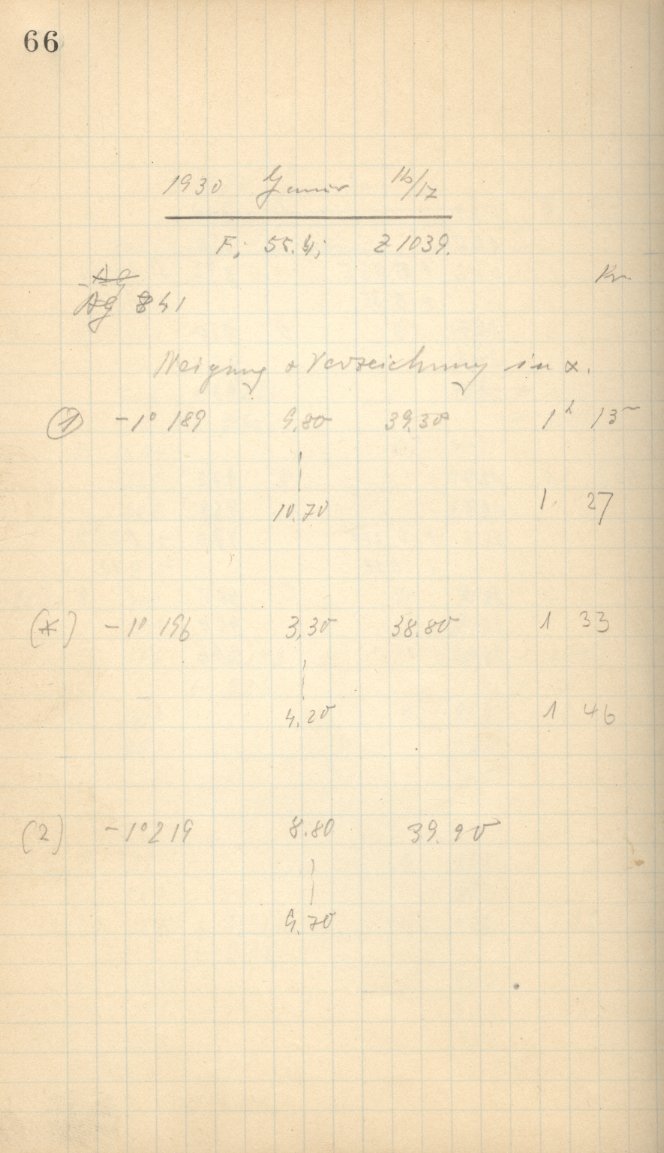 66
1930 Januar 16/17
F; 55.4; Z 1039.
Ag
Kr
Ag 841
Neigung & Verzeichnung in α.
(1) -1° 189 9.80 39.30 1h 15
10.70 1. 27
(*) -1° 196 3.30 38.80 1 33
4.20 1 46
(2) -1° 219 8.80 39.90
9.70